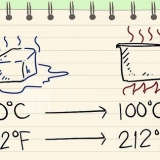 0°C → 100°C
2°F → 212°